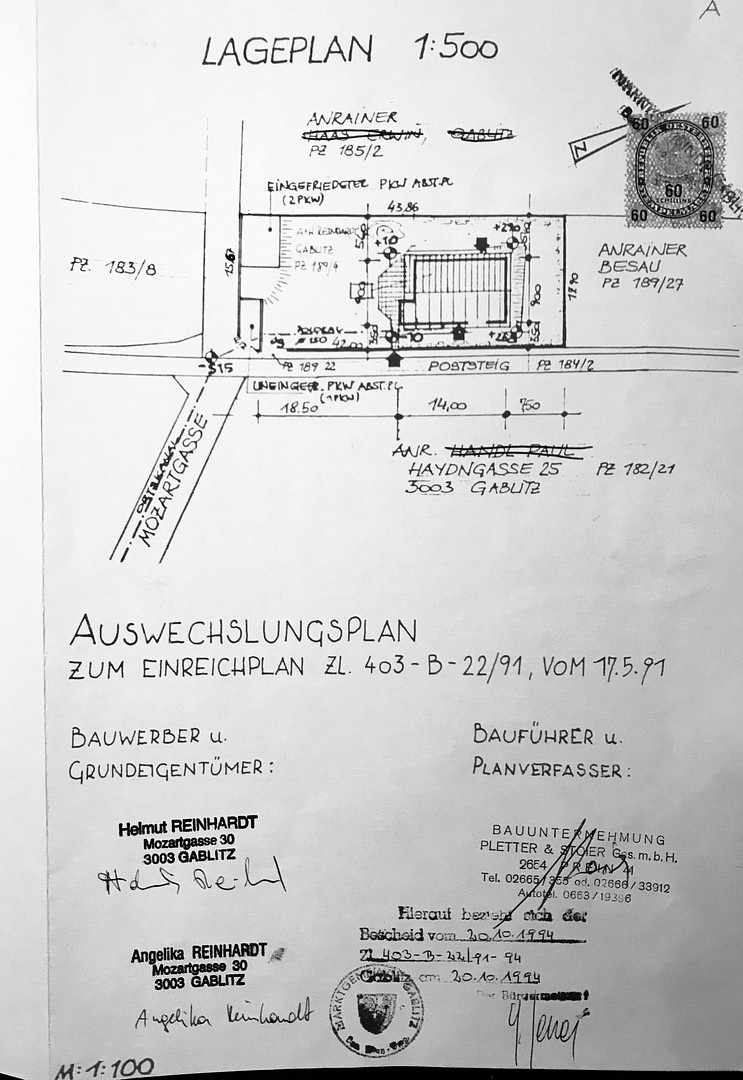 A
LAGEPLAN 1:500
ANRAINER
HAAS ERWIN, GABLITZ
PZ 185/2
60 60
60
SCHILLING
60 60
N
EINGEFRIEDETER PKW ABST.PL
(2PKW)
43.86
PZ. 183/8
15.67
A+H REINHARDT
GABLITZ
PZ 189/4
+210
900
900
17.90
5.50
ANRAINER
BESAU
PZ 189/27
42.00
-5.15
PZ 189 22
POSTSTEIG PZ 184/2
UNEINGEFR. PKW ABST.PL
(1PKW)
18.50 14,00 750
ORTSKANAL
MOZARTGASSE
ANR. HANDL PAUL
HAYDNGASSE 25 PZ 182/21
3003 GABLITZ
AUSWECHSLUNGSPLAN
ZUM EINREICHPLAN ZL. 403-B-22/91, VOM 17.5.91
BAUWERBER u.
GRUNDEIGENTÜMER:
BAUFÜHRER u.
PLANVERFASSER:
Helmut REINHARDT
Mozartgasse 30
3003 GABLITZ
BAUUNTERNEHMUNG
PLETTER & STOIER Ges.m.b.H.
2654 PREIN
Tel. 02665/355 od. 02666/33912
Autotel. 0663/19396
Hierauf bezieht sich der
Bescheid vom 20.10.1994
Zl 403-B-22/91-94
Gablitz am 20.10.1994
Der Bürgermeister
Angelika REINHARDT
Mozartgasse 30
3003 GABLITZ
Angelika Reinhardt
MARKTGEMEINDE GABLITZ
M:1:100